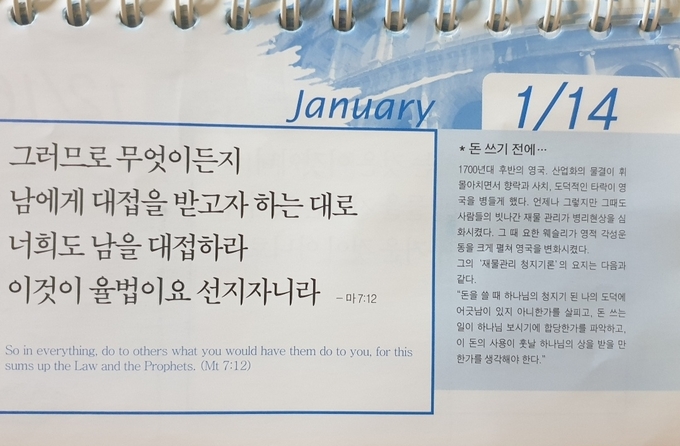 January
1/14
그러므로 무엇이든지
남에게 대접을 받고자 하는 대로
너희도 남을 대접하라
이것이 율법이요 선지자니라 - 마 7:12
So in everything, do to others what you would have them do to you, for this
sums up the Law and the Prophets. (Mt 7:12)
* 돈 쓰기 전에…
1700년대 후반의 영국. 산업화의 물결이 휘
몰아치면서 향락과 사치, 도덕적인 타락이 영
국을 병들게 했다. 언제나 그렇지만 그때도
사람들의 빗나간 재물 관리가 병리현상을 심
화시켰다. 그 때 요한 웨슬리가 영적 각성운
동을 크게 펼쳐 영국을 변화시켰다.
그의 '재물관리 청지기론'의 요지는 다음과
같다.
“돈을 쓸 때 하나님의 청지기 된 나의 도덕에
어긋남이 있지 아니한가를 살피고, 돈 쓰는
일이 하나님 보시기에 합당한가를 파악하고,
이 돈의 사용이 훗날 하나님의 상을 받을 만
한가를 생각해야 한다.”